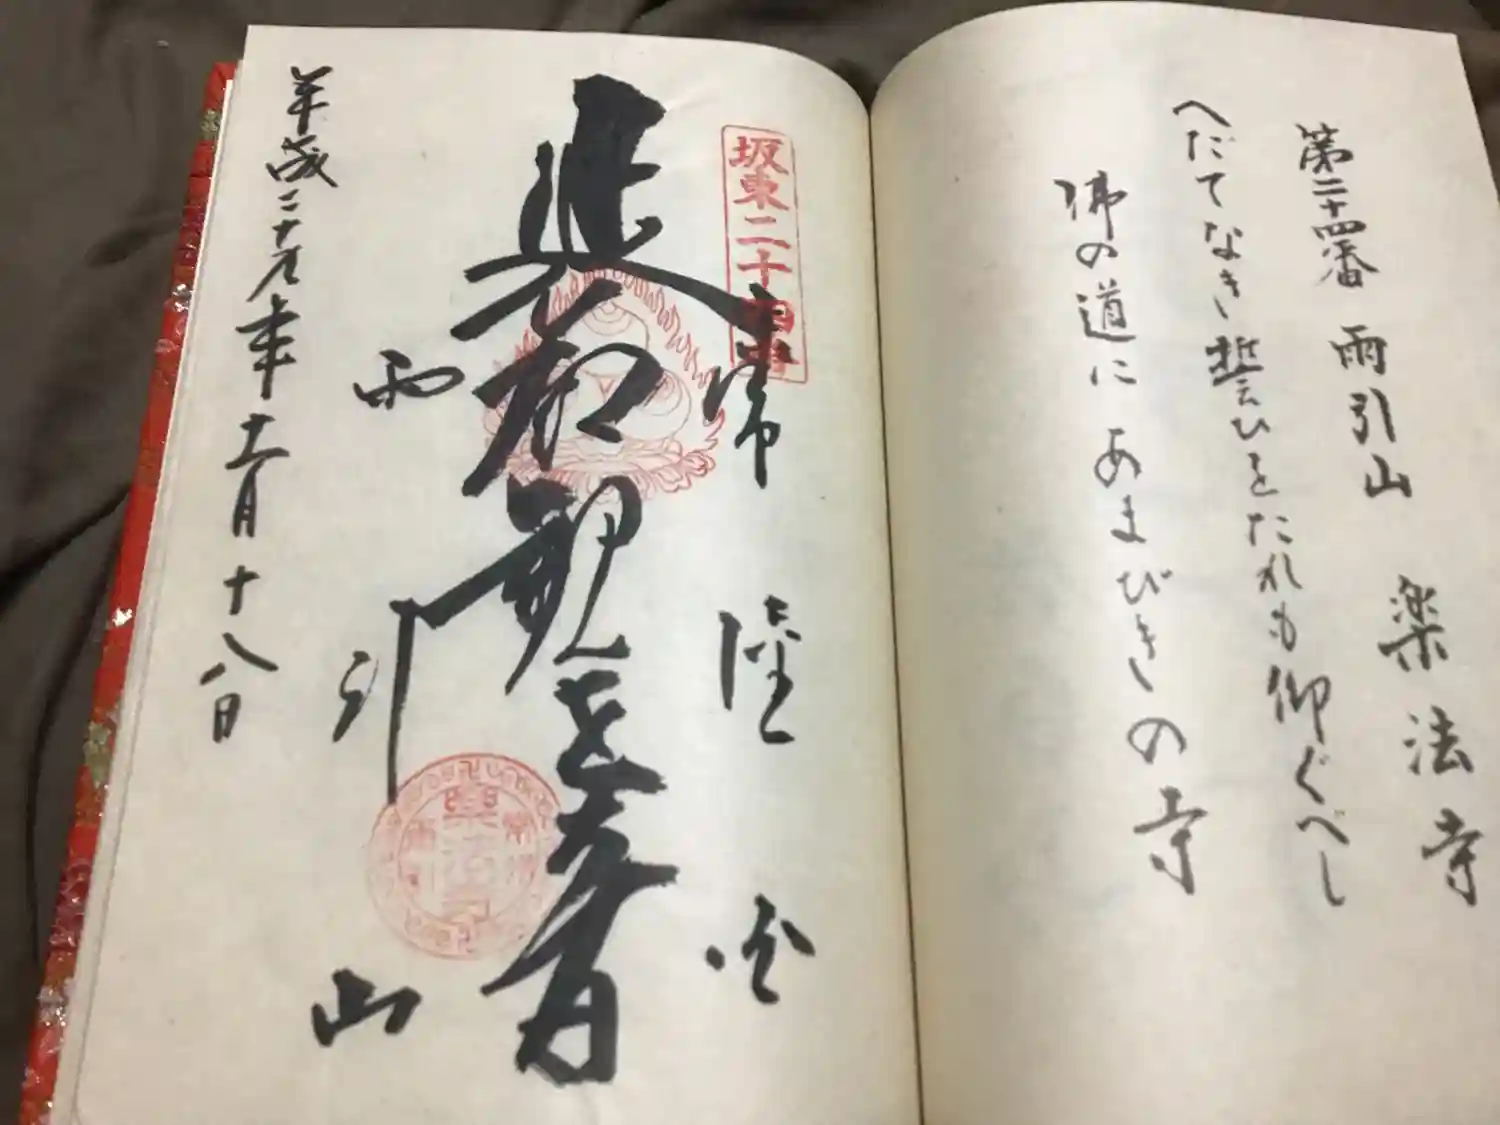 第二十四番 雨引山 楽法寺
へだてなき誓ひをたれも仰ぐべし
佛の道にあまびきの寺
坂東二十四番
常陸国
延命観世音
雨引山
平成二十九年十一月十八日